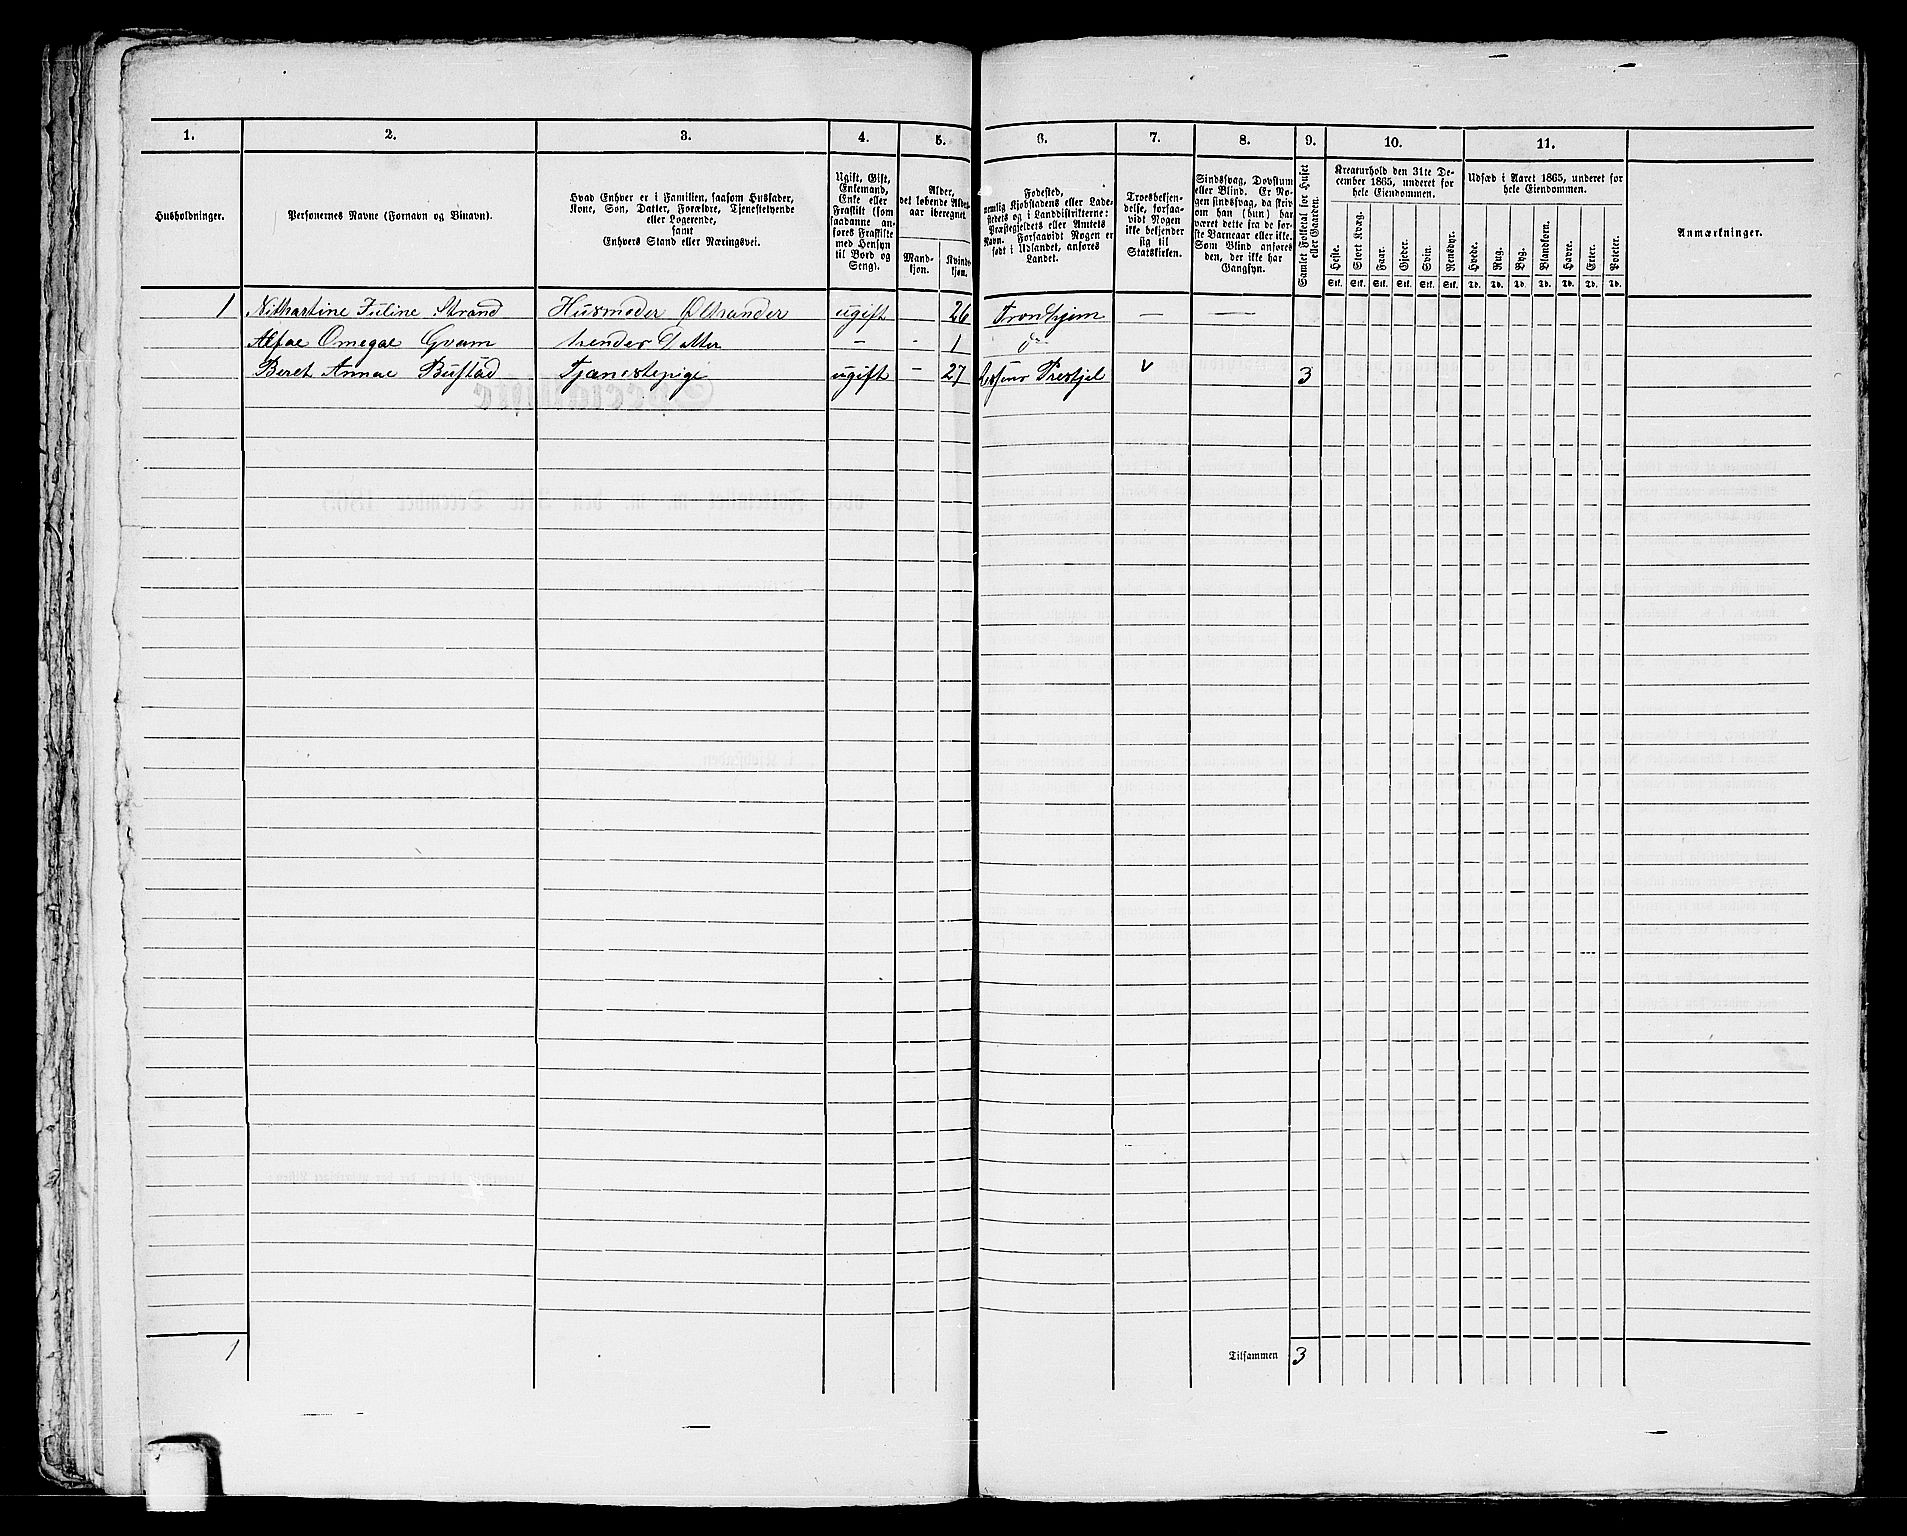 1. 2. 3. 4. 5. 6. 7. 8. 9. 10. 11.
Husholdninger.
Personernes Navne (Fornavn og Vinavn).
Hvad Enhver er i Familien, saasom Husfader,
Kone, Søn, Datter, Forældre, Tjenestetyende
eller Logerende,
samt
Enhvers Stand eller Næringsvei.
Ugift, Gift,
Enkemand,
Enke eller
Fraskilt (som
saadanne an-
føres Fraskilte
med Hensyn
til Bord og
Seng).
Alder,
det løbende Alders-
aar iberegnet.
Mand-
kjøn.
Kvinde-
kjøn.
Fødested,
nemlig Kjøbstadens eller Lade-
stedets og i Landdistrikterne:
Præstegjeldets eller Amtets
Navn. Forsaavidt Nogen er
født i Udlandet, anføres
Landet.
Troesbekjen-
delse, forsaa-
vidt Nogen
ikke bekjender
sig til
Statskirken.
Sindssvag, Døvstum
eller Blind. Er No-
gen sindssvag, da skriv
om han (hun) har
været dette fra de før-
ste Barneaar eller ikke.
Som Blind anføres
den, der ikke har
Gangsyn.
Samlet Folketal for Huset
eller Gaarden.
Kreaturhold den 31te De-
cember 1865, underet for
hele Eiendommen.
Heste. Stort Kvæg. Faar. Gjeder. Svin. Rensdyr.
Stk. Stk. Stk. Stk. Stk. Stk.
Udsæd i Aaret 1865, underet for
hele Eiendommen.
Hvede. Rug. Byg. Blandkorn. Havre. Erter. Poteter.
Td. Td. Td. Td. Td. Td. Td.
Anmærkninger.
1 Juline Strand Husmoder ugift - 26 Tronhjem — —
Omegae Gram hendes Datter - - 1 do
Beret Annae Bustad Tjenestepige ugift - 27 3
1 Tilsammen 3